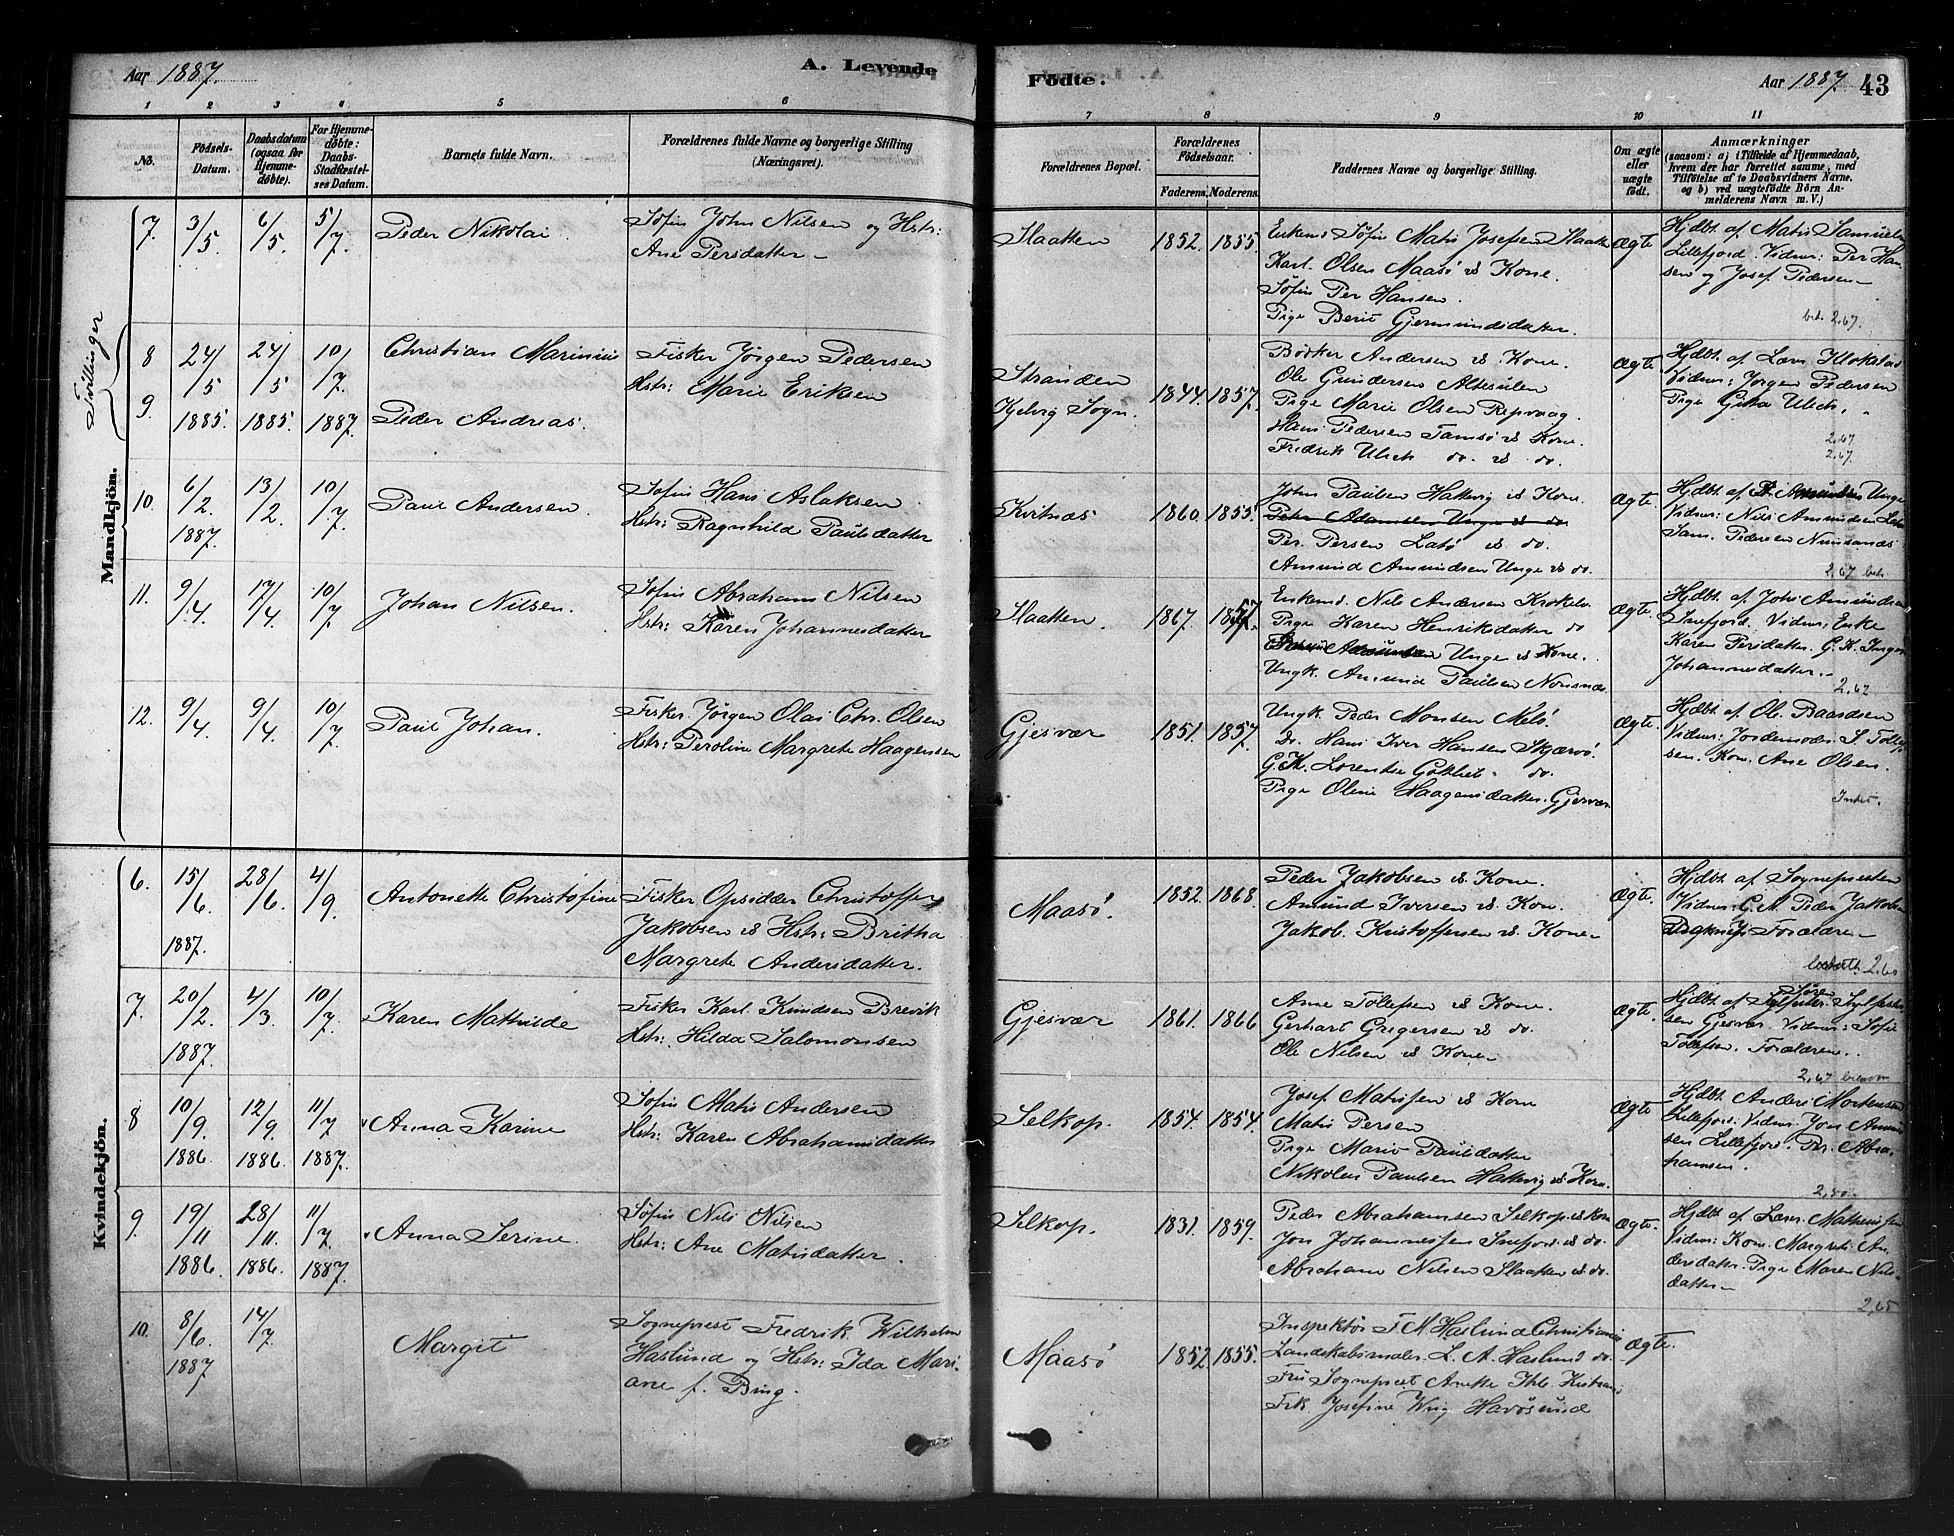 Aar 1887.
A. Levende
Fødte.
Aar 1887
43
1 2 3 4 5 6
7 8 9 10 11
No.
Fødsels-
Datum.
Daabsdatum
(ogsaa for
Hjemme-
døbte).
For Hjemme-
døbte:
Daabs-
Stadfæstel-
ses Datum.
Barnets fulde Navn.
Forældrenes fulde Navne og borgerlige Stilling
(Næringsvei).
Forældrenes Bopæl.
Forældrenes
Fødselsaar.
Faderens. Moderens.
Faddernes Navne og borgerlige Stilling.
Om ægte
eller
uægte
født.
Anmærkninger
(saasom: a) i Tilfælde af Hjemmedaab,
hvem der har forrettet samme, med
Tilføielse af to Daabsvidners Navne.
og b) ved uægtefødte Börn An-
melderens Navn m. V.)
Mandkjön.
Tvillinger
7. 3/5 6/5 5/7
Peder Nikolai.
Søfin John Nilsen og Hstr:
Ane Persdatter
Slaatten
1852. 1855.
Enkemd Søfin Matis Josefsen Slaatte
Karl Olsen Maasø & Kone.
Søfin Per Hansen.
Pige Berit Gjermundsdatter.
Ægte
Hjdbt. af Matis Samuels
Lillefjord. Vidner: Per Han-
sen og Josef Pedersen
bet. 2,67.
8 24/5 24/5 10/7
9. 1885. 1885. 1887.
Christian Marinius
Peder Andreas.
Fisker Jørgen Pedersen
Hstr: Marie Eriksen
Stranden
Kjelvig Sogn.
1844. 1857.
Børker Andersen & Kone.
Ole Gundersen Altesulen
Pige Marie Olsen Repvaag.
Hans Pedersen Tamsø & Kone.
Fredrik Ulich do. & do.
Ægte
Hjdbt. af Lærer
Vidner: Jørgen Pedersen
Pige Ulich.
2,67
2,67.
10. 6/2 13/2 10/7
1887.
Paul Andersen
Søfin Hans Aslaksen.
Hstr: Ragnhild Paulsdatter
Kvitnæs
1860. 1855.
John Paulsen Hattevig & Kone.
Peder Adamsen Unge & do
Per Persen Latø & do.
Amund Amundsen Unge & do.
Ægte
Hjdbt. af Unge
Vidner: Nils Amundsen
Sam. Pedersen
2,67 bet.
11. 9/4. 17/4. 10/7
Johan Nilsen.
Søfin Abraham Nilsen
Hstr: Karen Johannesdatter
Slaatten.
1867. 1857.
Enkemd. Nils Andersen Krokelv
Pige Karen Henriksdatter do
Unge & Kone.
Ungk. Amund Paulsen
Ægte
Hjdbt. af Johs Amundsen
Snefjord. Vidner: Enke
Karen Persdatter. G. K. Inger
Johannesdatter.
2,67
12. 9/4. 9/4. 10/7
Paul Johan.
Fisker Jørgen Olai Chr. Olsen
Hstr: Peroline Margrete Haagensen
Gjesvær
1851. 1857.
Ungk. Peder Monsen Melø.
Do. Hans Iver Hansen Skjærvø.
G.K. Lorentse Gottlieb do.
Pige Oline Haagensdatter. Gjesvær
Ægte.
Hjdbt. af Ole Baardsen
Vidner: Jordemoder S. Tollef-
sen. Kone Ane Olsen.
Kvindekjön.
6. 15/6. 28/6 4/9
1887.
Antonette Christofine
Fisker Opsidder Christoffer
Jakobsen & Hstr: Britha
Margrete Andersdatter.
Maasø.
1852. 1868.
Peder Jakobsen & Kone.
Amund Iversen & Kone.
Jakob Kristoffersen & Kone
Ægte.
Hjdbt. af Sognepresten
Vidner: G.M. Peder Jakobsen
Forældrene
2,60
7. 20/2 4/3 10/7
1887.
Karen Mathilde
Fisker Karl Knudsen Brevik
Hstr: Hilda Salomonsen
Gjesvær
1861. 1866
Arne Tollefsen & Kone.
Gerhart Gregersen & do.
Ole Nilsen & Kone
Ægte.
Hjdbt. af Søren Sylfest-
sen Gjesvær. Vidner: Sofie
Tollefsen. Forældrene.
2,67
8 10/9. 12/9. 11/7
1886. 1886. 1887.
Anna Karine
Søfin Matis Andersen
Hstr: Karen Abrahamsdatter
Selkop.
1854. 1854.
Josef Mathisen & Kone
Matis Persen
Pige Marit Paulsdatter
Nikolai Paulsen Hattevig & Kone.
Ægte
Hjdbt. Anders Mortensen
Lillefjord. Vidner: Jon Amund-
sen Lillefjord. Per Abra-
hamsen.
2,50
9. 19/11 28/11. 11/7.
1886. 1886. 1887.
Anna Serine.
Søfin Nils Nilsen
Hstr: Ane Matisdatter.
Selkop.
1831. 1859.
Peder Abrahamsen Selkop. & Kone
Jon Johannessen Snefjord & do.
Abraham Nilsen Slaatten & do.
Ægte.
Hjdbt. af Lærer Mathisen
Vidner: Kone Margrete An-
dersdatter. Pige Maren Nils-
datter
2,65
10. 8/6 14/7
1887
Margit
Sogneprest Fredrik Wilhelm
Haslund og Hstr: Ida Mari-
ane f. Bing.
Maasø
1852. 1855.
Inspektør F. M. Haslund Christiania
Landskabsmaler L. A. Haslund do.
Fru Sogneprest Anette
Frk Josefine Wiig Havøsund
Ægte.